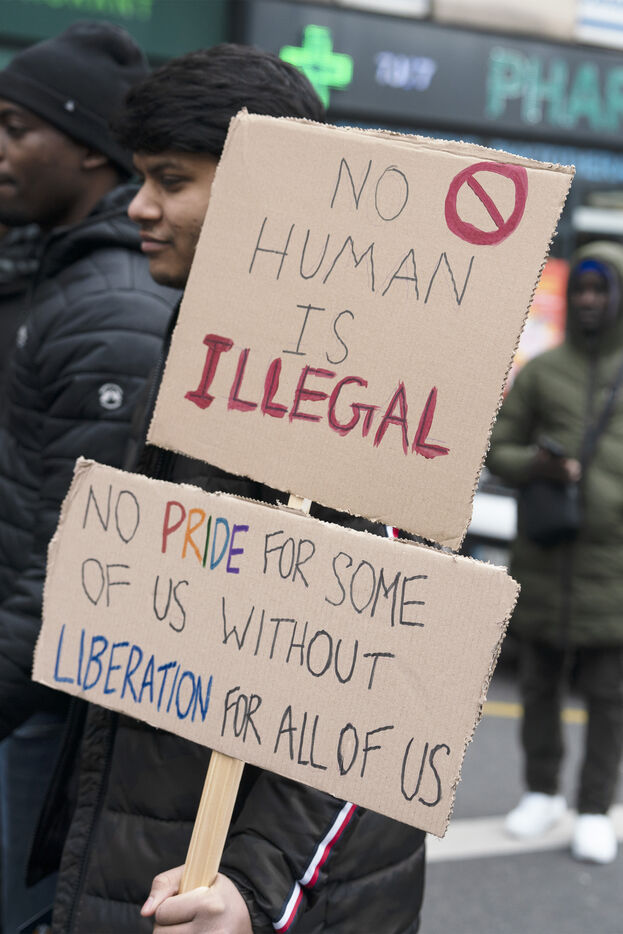 PHAR
NO
HUMAN
IS
ILLEGAL
NO PRIDE FOR SOME
OF US WITHOUT
LIBERATION FOR ALL OF US